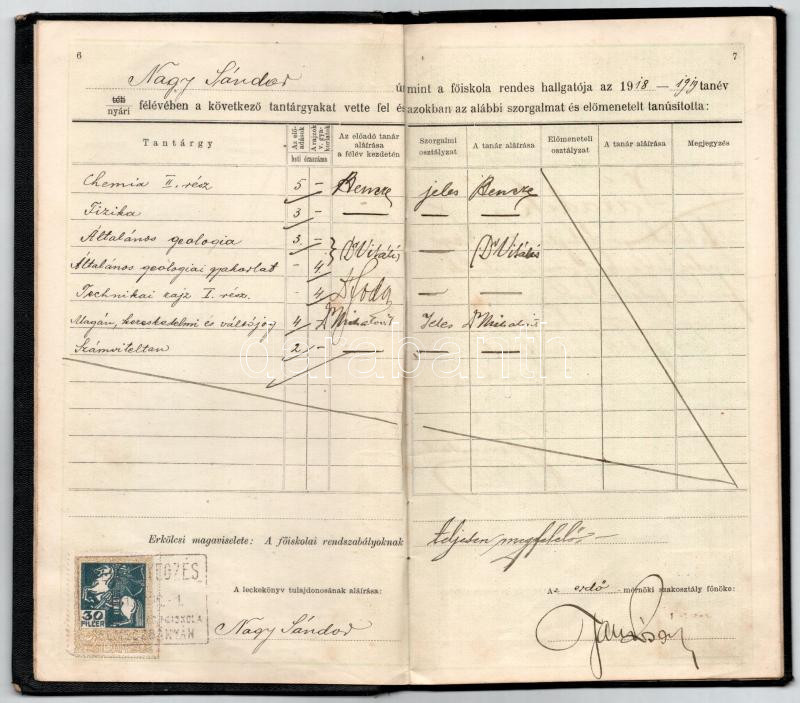 6
7
Nagy Sándor úr mint a főiskola rendes hallgatója az 1918 — 1919 tanév
téli
nyári félévében a következő tantárgyakat vette fel és azokban az alábbi szorgalmat és előmenetelt tanúsította:
Tantárgy
Az elő-
adások
A rajzok
v. gya-
korlatok
heti óraszáma
Az előadó tanár
aláírása
a félév kezdetén
Szorgalmi
osztályzat
A tanár aláírása
Előmeneteli
osztályzat
A tanár aláírása
Megjegyzés
Chemia II. rész 5 – Bencze jeles Bencze
Fizika 3 – — — —
Általános geologia 3 – Dr Vitális — Dr Vitális
Általános geológiai gyakorlat - 4
Technikai rajz I. rész. - 4 —
Magán, kereskedelmi és váltójog 4 - Jeles
Számviteltan 2 – — — —
darabanth
Erkölcsi magaviselete: A főiskolai rendszabályoknak teljesen megfelelő
A leckekönyv tulajdonosának aláírása:
Az erdő mérnöki szakosztály főnöke:
Nagy Sándor
30
FILLÉR